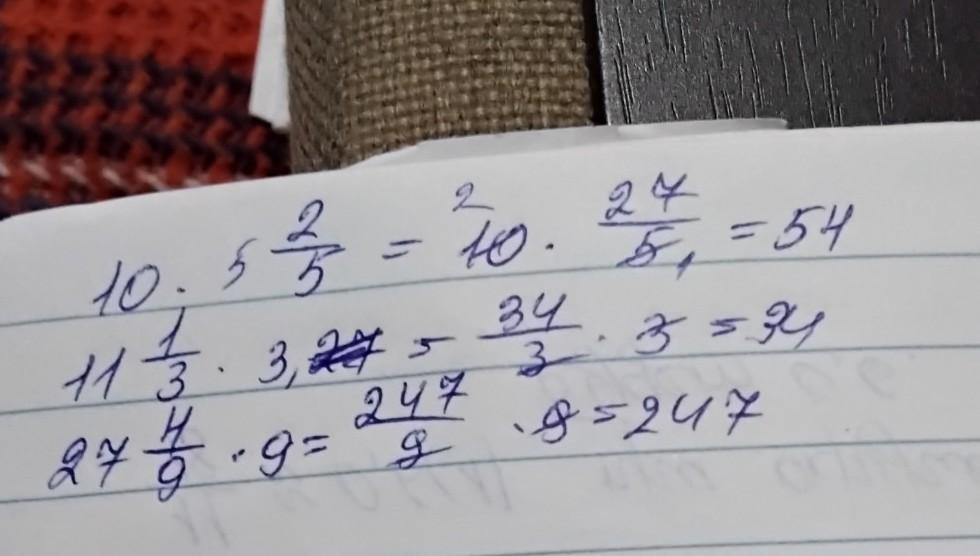 10 · 5 2/5 = 10 · 27/5 = 54
11 1/3 · 3, = 34/3 · 3 = 34
27 4/9 · 9 = 247/9 · 9 = 247